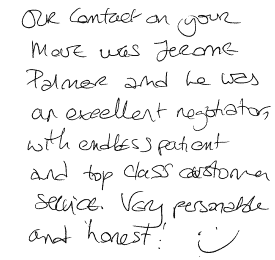 OUR Contact on your
Move was Jerome
Palmer and he was
an excellent negotiator,
with endless patient
and top class customer
service. Very personable
and honest!